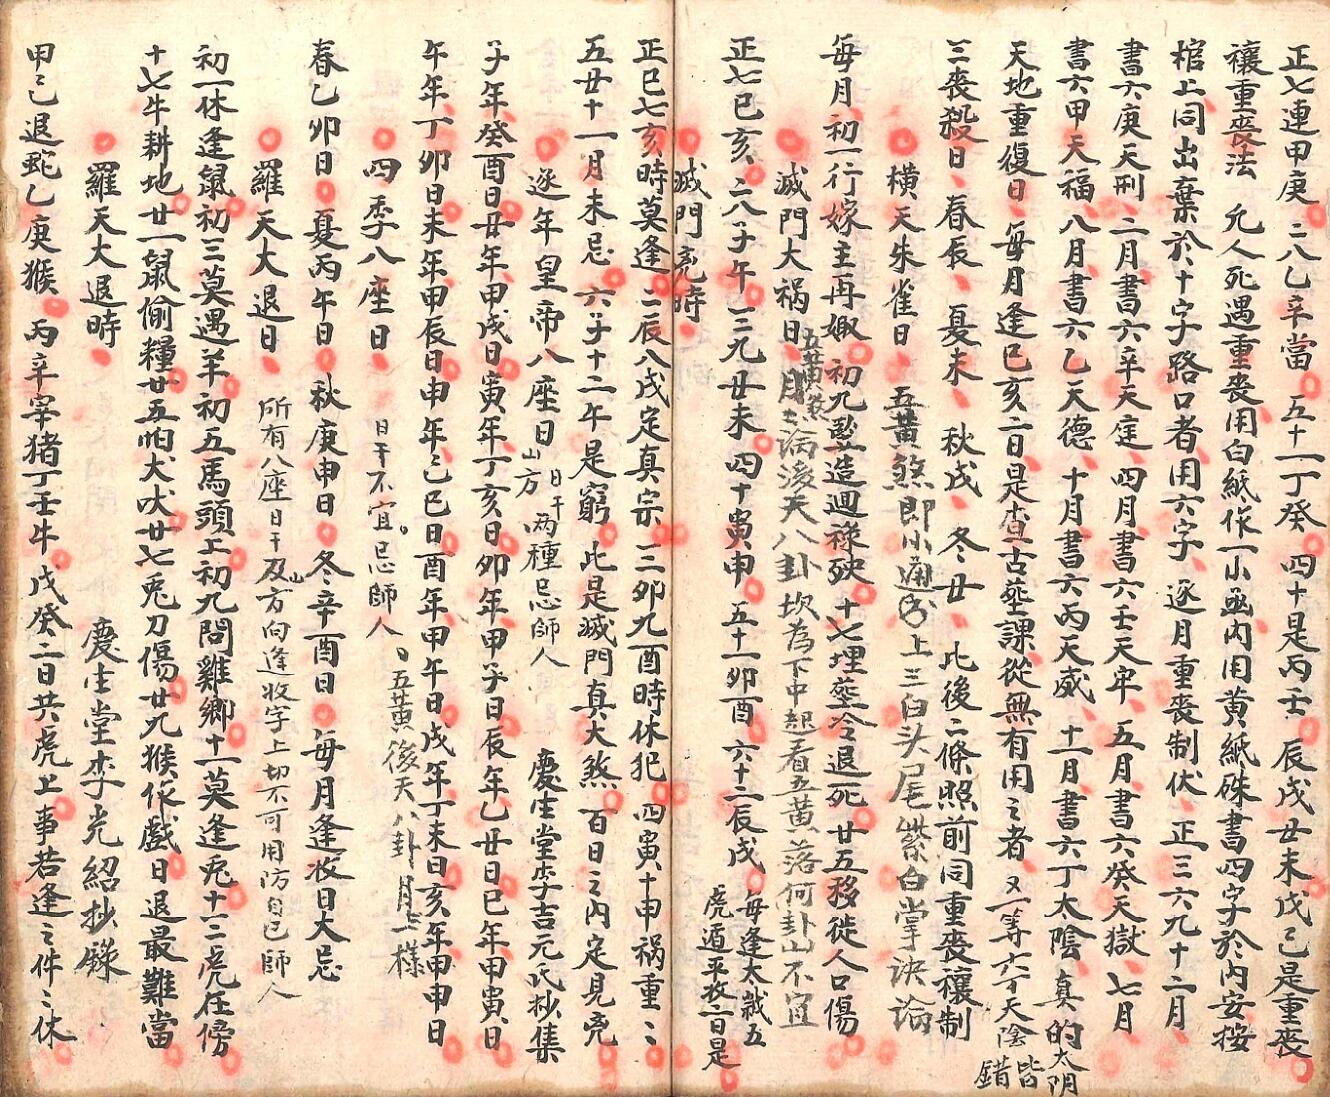 正七連甲庚 二八乙辛當 五十一丁癸 四十是丙壬 辰戌丑未戊己是重喪
禳重喪法 凡人死遇重喪用白紙作一小函内用黄紙硃書四字於内安按
棺上同出棄於十字路口者用六字 逐月重喪制伏 正三六九十二月
書六庚天刑 二月書六辛天庭 四月書六壬天牢 五月書六癸天獄 七月
書六甲天福 八月書六乙天德 十月書六丙天威 十一月書六丁太陰 真的太阴
天地重復日 每月逢巳亥二日是查古塟課從無有用之者 又一等六丁天陰皆錯
三喪殺日 春辰 夏未 秋戌 冬丑 此後二條照前同重喪禳制
横天朱雀日 五黄煞即小通書上三白头尾紫白掌诀論
每月初一行嫁主再娶 初九竪造迴祿殃 十七埋塟冷退死 廿五移徙人口傷
滅門大祸日 五黄煞月上論後天八卦坎為下中起看五黄落何卦山不宜
正七巳亥 二八子午 三九丑未 四十寅申 五十一卯酉 六十二辰戌 每逢太歳五虎遁平收二日是
滅門凶時
正巳七亥時莫逢 二辰八戌定真宗 三卯九酉時休犯 四寅十申祸重重
五丑十一月未忌 六子十二午是窮 此是滅門真大煞 百日之内定見凶
逐年皇帝八座日 山方日干两種忌師人 慶生堂李吉元氏抄集
子年癸酉日丑年甲戌日寅年丁亥日卯年甲子日辰年乙丑日巳年甲寅日
午年丁卯日未年甲辰日申年己巳日酉年甲午日戌年丁未日亥年甲申日
四季八座日 日干不宜忌師人 五黄後天八卦月上一様
春乙卯日 夏丙午日 秋庚申日 冬辛酉日 每月逢收日大忌
羅天大退日 所有八座日干及山方向逢收字上切不可用防自己師人
初一休逢鼠初三莫遇羊初五馬頭上初九問雞鄉十一莫逢兎十三虎在傍
十七牛耕地廿一鼠偷糧廿五怕犬吠廿七兎刀傷廿九猴作戲日退最難當
羅天大退時 慶生堂李光紹抄錄
甲己退蛇乙庚猴 丙辛宰猪丁壬牛 戊癸二日共虎上事若逢之件件休